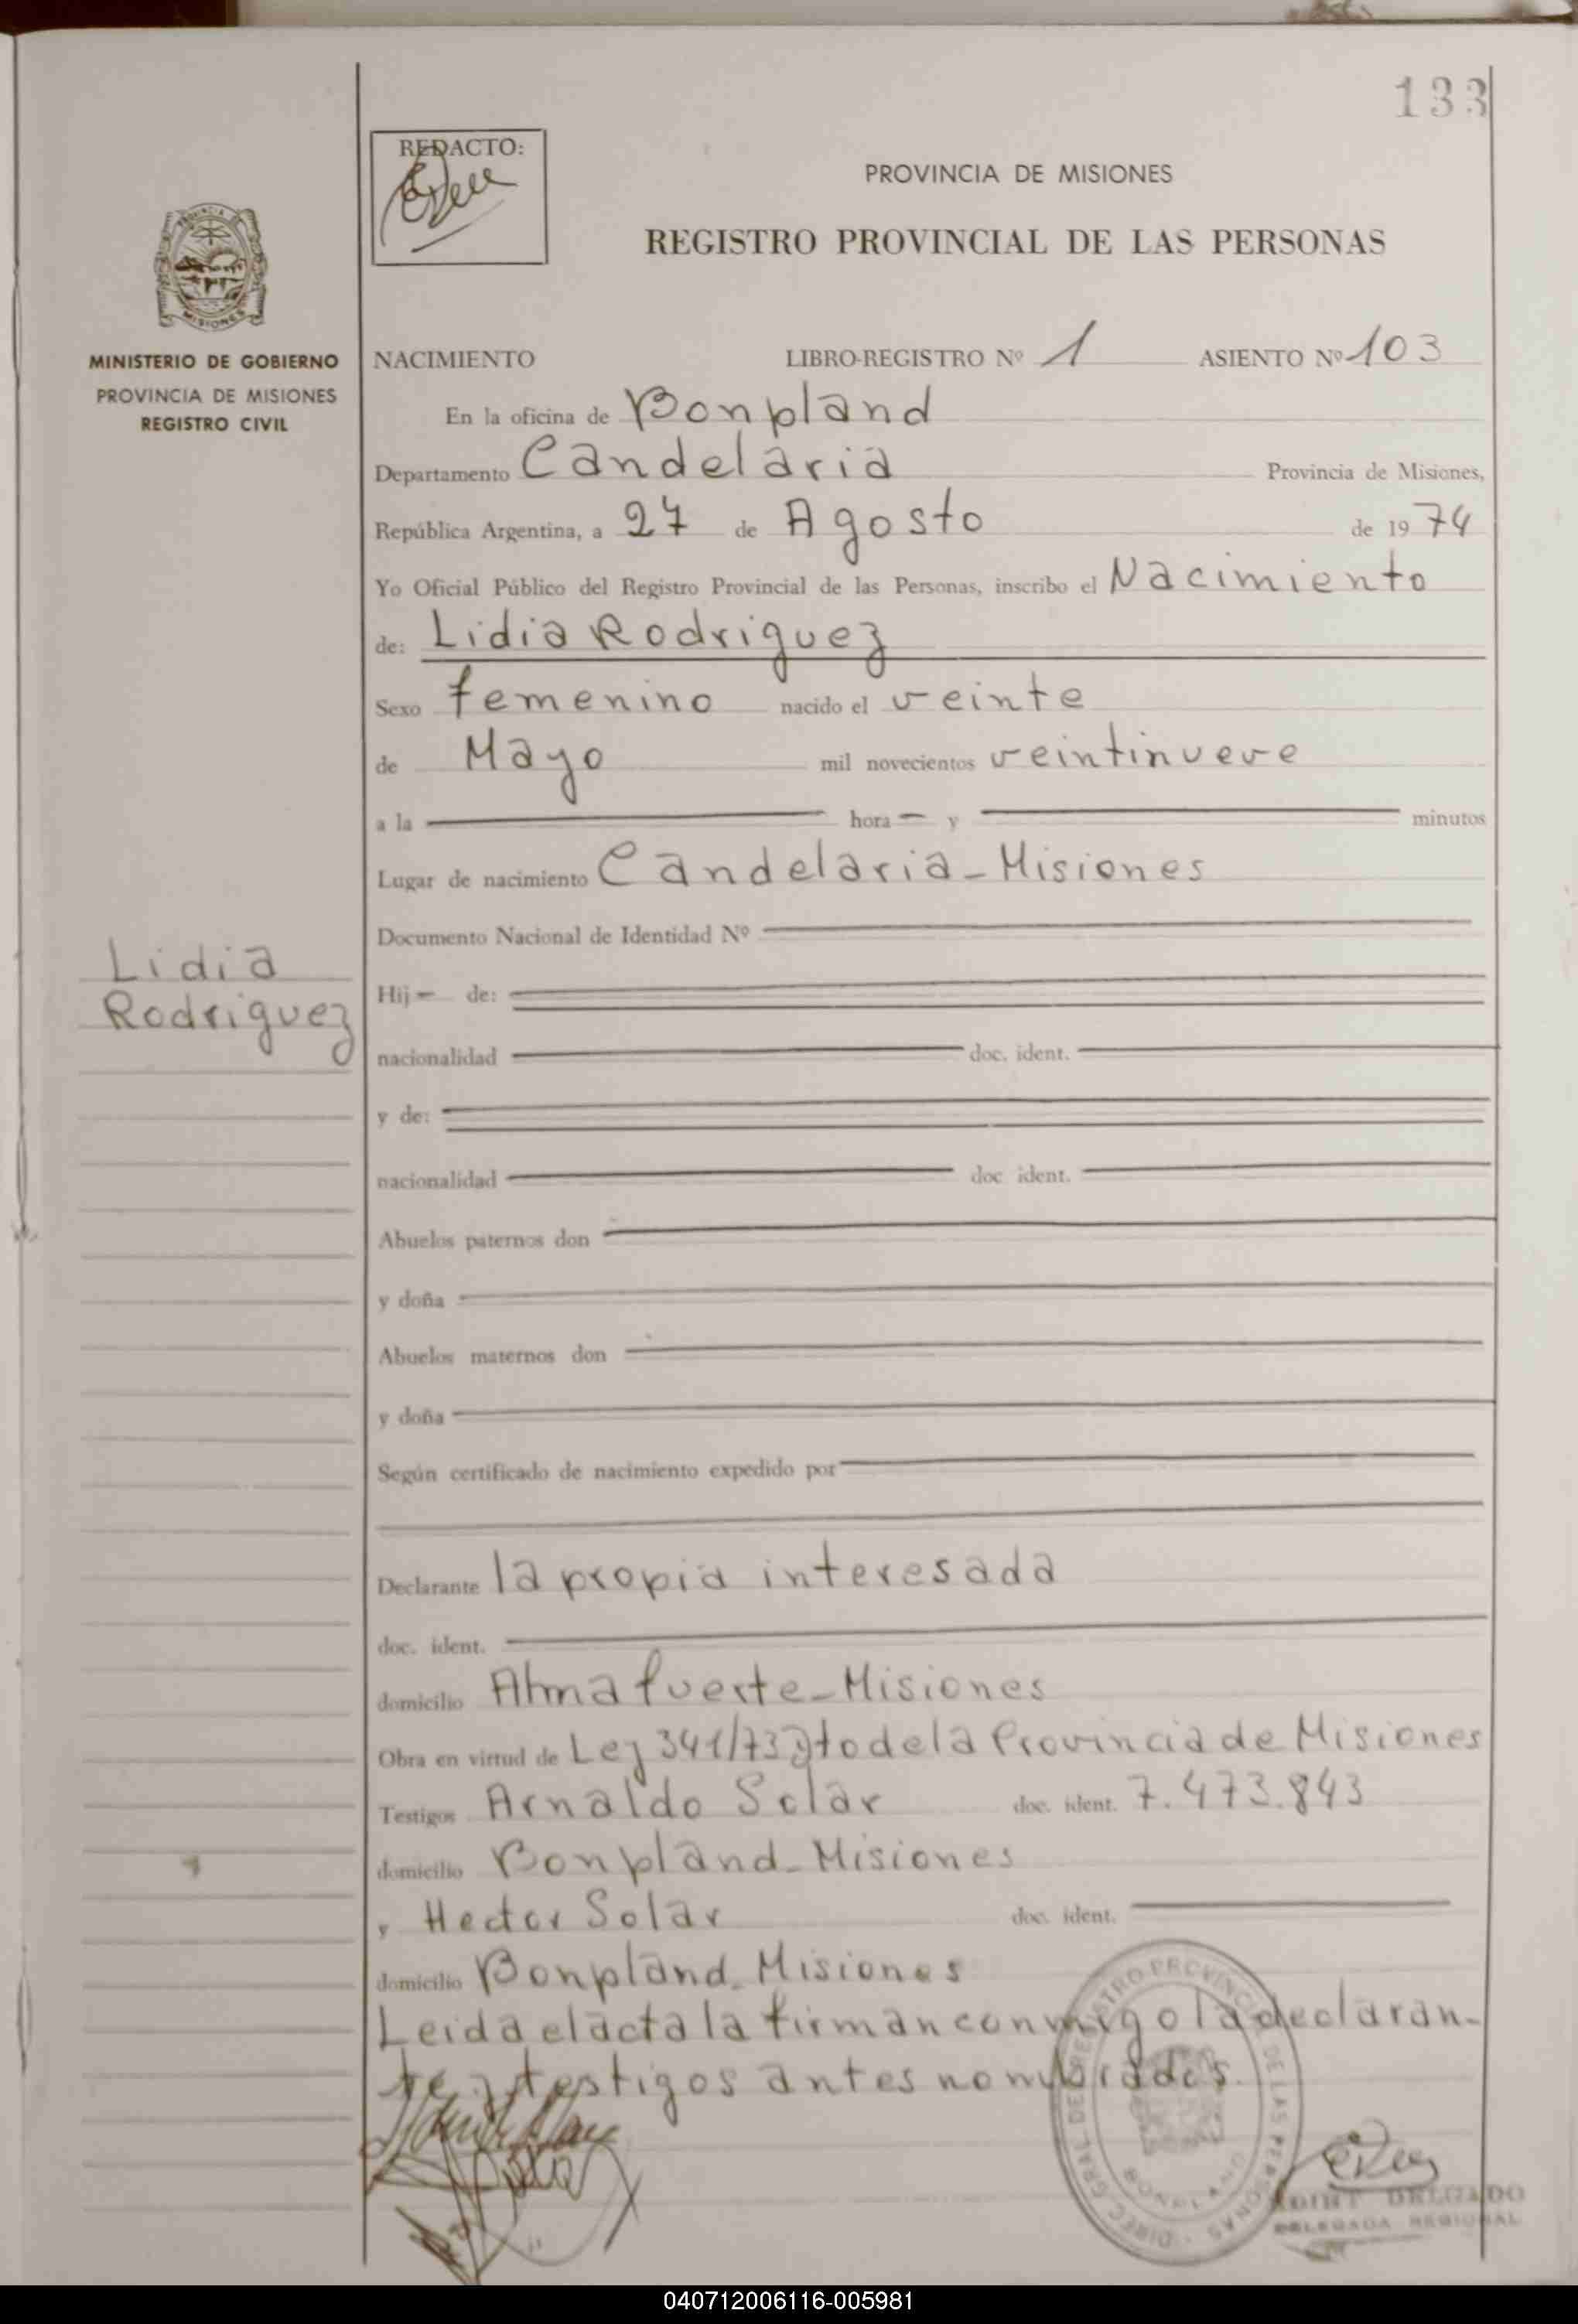 133
REDACTO:
PROVINCIA DE MISIONES
REGISTRO PROVINCIAL DE LAS PERSONAS
MISIONES
MINISTERIO DE GOBIERNO
PROVINCIA DE MISIONES
REGISTRO CIVIL
NACIMIENTO LIBRO-REGISTRO Nº 1 ASIENTO Nº 103
En la oficina de Bonpland
Departamento Candelaria Provincia de Misiones,
República Argentina, a 27 de Agosto de 1974
Yo Oficial Público del Registro Provincial de las Personas, inscribo el Nacimiento
de: Lidia Rodriguez
Sexo femenino nacido el veinte
de Mayo mil novecientos veintinueve
a la hora y minutos
Lugar de nacimiento Candelaria-Misiones
Documento Nacional de Identidad Nº
Lidia
Rodriguez
Hij de:
nacionalidad doc. ident.
y de:
nacionalidad doc. ident.
Abuelos paternos don
y doña
Abuelos maternos don
y doña
Según certificado de nacimiento expedido por
Declarante la propia interesada
doc. ident.
domicilio Almafuerte-Misiones
Obra en virtud de Ley 341/73 Dto de la Provincia de Misiones
Testigos Arnaldo Solar doc. ident. 7.473.843
domicilio Bonpland-Misiones
y Hector Solar doc. ident.
domicilio Bonpland-Misiones
Leida el acta la firman conmigo la declaran-
te y testigos antes nombrados.
DIREC. GRAL. DEL REGISTRO PROVINCIAL DE LAS PERSONAS
BONPLAND
DELGADO
DELEGADA REGIONAL
040712006116-005981